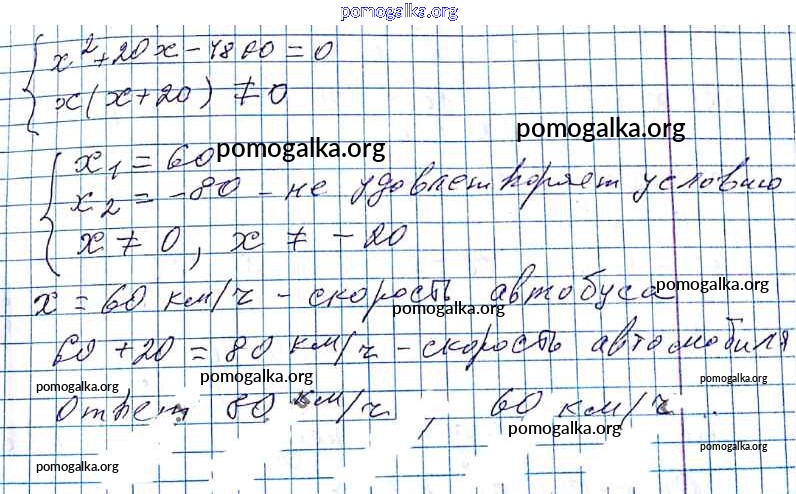 pomogalka.org
x² + 20x - 4800 = 0
x(x+20) ≠ 0
pomogalka.org
x₁ = 60 pomogalka.org
x₂ = -80 - не удовлетворяет условию
x ≠ 0, x ≠ -20
x = 60 км/ч - скорость автобуса
pomogalka.org
pomogalka.org
60 + 20 = 80 км/ч - скорость автомобиля
pomogalka.org pomogalka.org pomogalka.org
Ответ: 80 км/ч, 60 км/ч.
pomogalka.org
pomogalka.org pomogalka.org